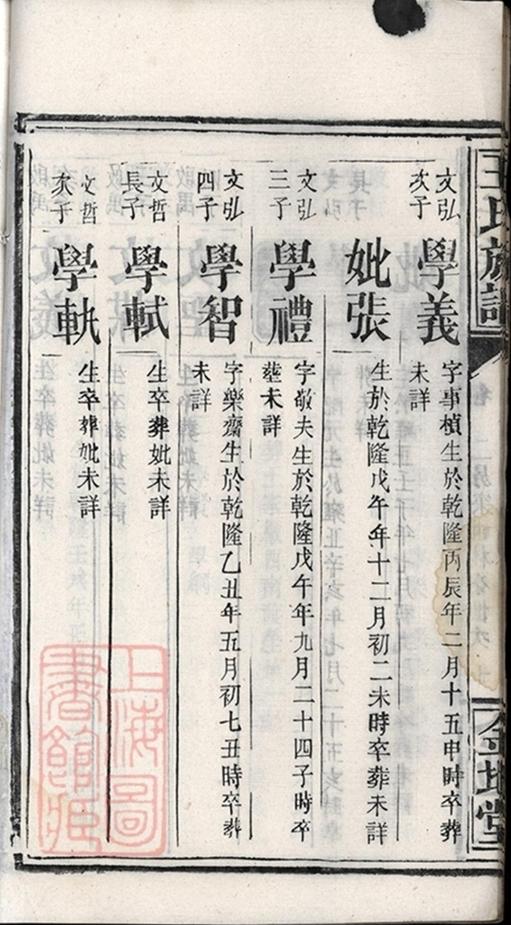 王氏族譜
文弘
次子
學義
字事楨生於乾隆丙辰年二月十五申時卒葬
未詳
妣張
生於乾隆戊午年十二月初二未時卒葬未詳
文弘
三子
學禮
字敬夫生於乾隆戊午年九月二十四子時卒
塟未詳
文弘
四子
學智
字樂齋生於乾隆乙丑年五月初七丑時卒葬
未詳
文哲
長子
學軾
生卒葬妣未詳
文哲
次子
學軌
生卒葬妣未詳
上海圖
書館藏